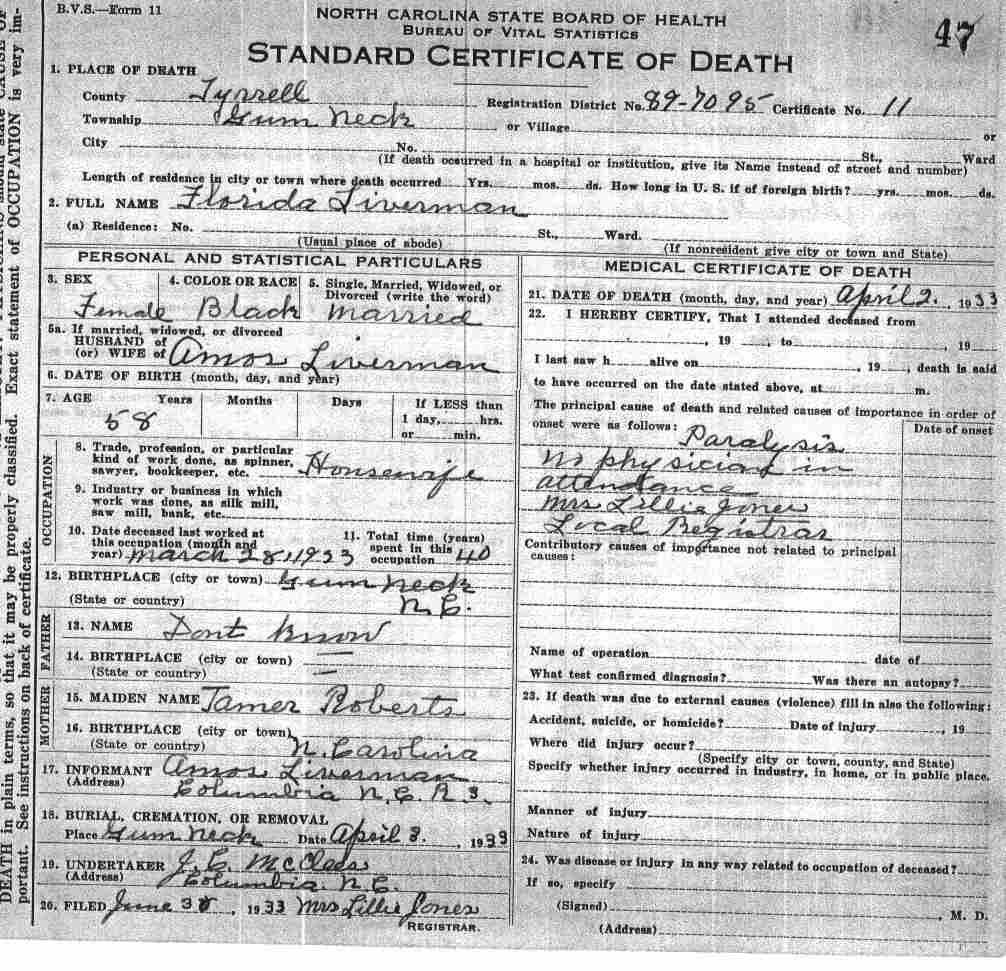 B.V.S.—Form 11
NORTH CAROLINA STATE BOARD OF HEALTH
BUREAU OF VITAL STATISTICS
STANDARD CERTIFICATE OF DEATH
47
1. PLACE OF DEATH
County Tyrrell Registration District No. 89-7095 Certificate No. 11
Township Gum Neck or Village or
City No. St., Ward
(If death occurred in a hospital or institution, give its Name instead of street and number)
Length of residence in city or town where death occurred Yrs. mos. ds. How long in U. S. if of foreign birth? yrs. mos. ds.
2. FULL NAME Florida Liverman
(a) Residence: No. St., Ward.
(Usual place of abode) (If nonresident give city or town and State)
PERSONAL AND STATISTICAL PARTICULARS
3. SEX 4. COLOR OR RACE 5. Single, Married, Widowed, or
Divorced (write the word)
Female Black Married
5a. If married, widowed, or divorced
HUSBAND of
(or) WIFE of Amos Liverman
6. DATE OF BIRTH (month, day, and year)
7. AGE Years Months Days If LESS than
58 1 day, hrs.
or min.
OCCUPATION
8. Trade, profession, or particular
kind of work done, as spinner,
sawyer, bookkeeper, etc. Housewife
9. Industry or business in which
work was done, as silk mill,
saw mill, bank, etc.
10. Date deceased last worked at
this occupation (month and
year) March 28 1933
11. Total time (years)
spent in this
occupation 40
12. BIRTHPLACE (city or town) Gum Neck
(State or country) N.C.
FATHER
13. NAME Dont Know
14. BIRTHPLACE (city or town) —
(State or country) —
MOTHER
15. MAIDEN NAME Tamer Roberts
16. BIRTHPLACE (city or town)
(State or country) N. Carolina
17. INFORMANT Amos Liverman
(Address) Columbia N.C. R 3.
18. BURIAL, CREMATION, OR REMOVAL
Place Gum Neck Date April 3, 1933
19. UNDERTAKER J. C. McClees
(Address) Columbia N.C.
20. FILED June 30, 1933 Mrs Lillie Jones
REGISTRAR.
MEDICAL CERTIFICATE OF DEATH
21. DATE OF DEATH (month, day, and year) April 2., 1933
22. I HEREBY CERTIFY, That I attended deceased from
, 19 , to , 19
I last saw h alive on , 19 , death is said
to have occurred on the date stated above, at m.
The principal cause of death and related causes of importance in order of
onset were as follows: Date of onset
Paralysis
No physician in
attendance
Mrs Lillie Jones
Local Registrar
Contributory causes of importance not related to principal
causes:
Name of operation date of
What test confirmed diagnosis? Was there an autopsy?
23. If death was due to external causes (violence) fill in also the following:
Accident, suicide, or homicide? Date of injury , 19
Where did injury occur?
(Specify city or town, county, and State)
Specify whether injury occurred in industry, in home, or in public place.
Manner of injury
Nature of injury
24. Was disease or injury in any way related to occupation of deceased?
If so, specify
(Signed) , M. D.
(Address)
DEATH in plain terms, so that it may be properly classified. Exact statement of OCCUPATION is very im-
portant. See instructions on back of certificate.